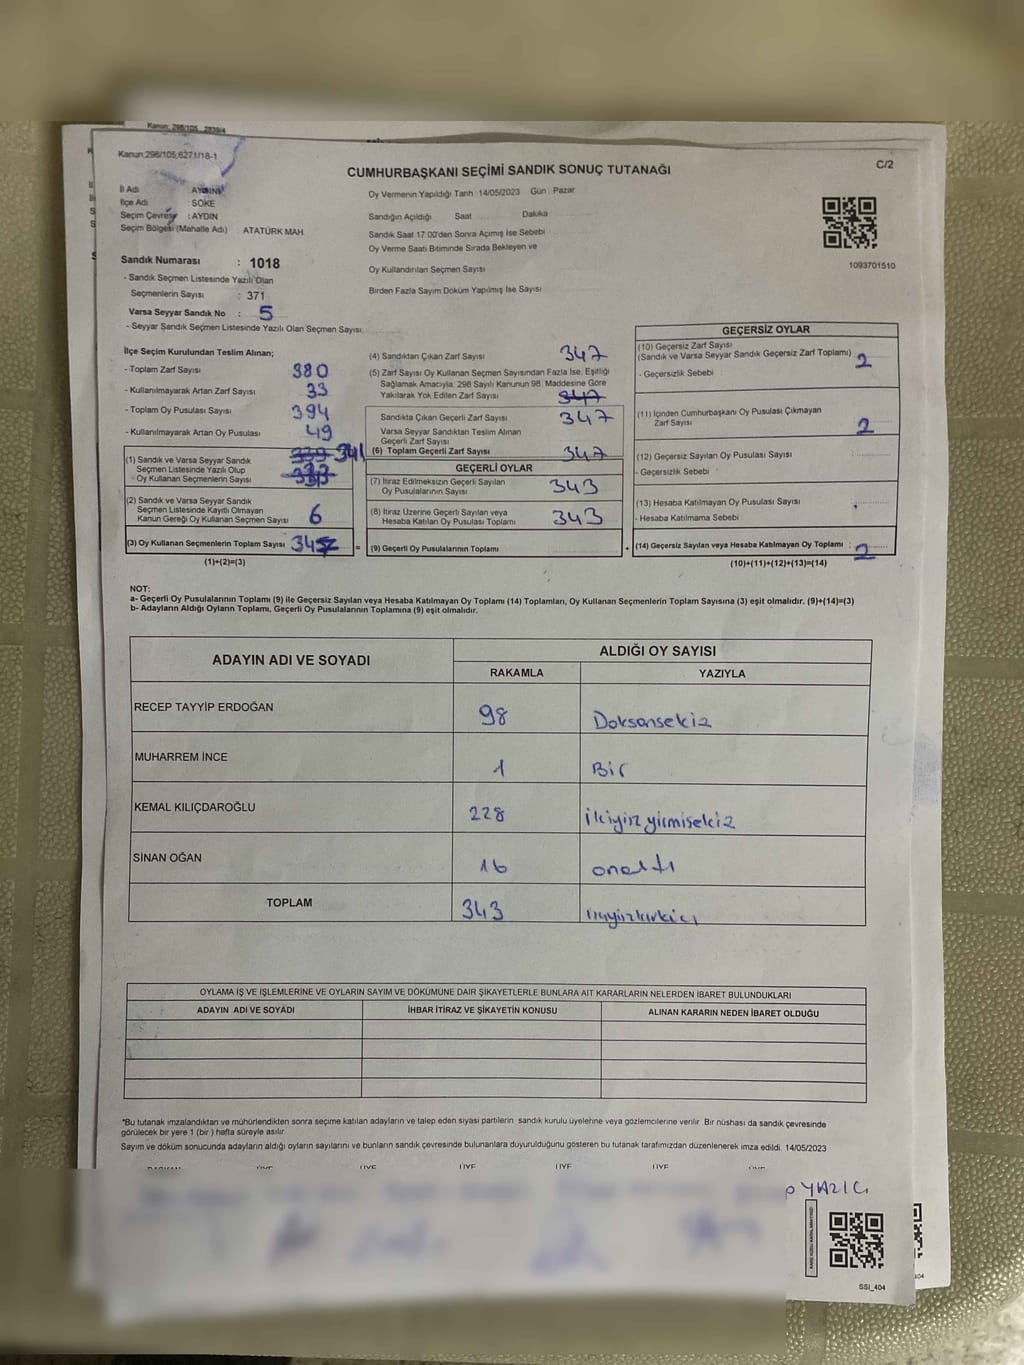 Kanun; 298/105, 2839/4
Kanun;298/105;6271/18-1
C/2
CUMHURBAŞKANI SEÇİMİ SANDIK SONUÇ TUTANAĞI
İl Adı : AYDIN
İlçe Adı : SÖKE
Seçim Çevresi : AYDIN
Seçim Bölgesi (Mahalle Adı) ATATÜRK MAH.
Oy Vermenin Yapıldığı Tarih : 14/05/2023 Gün : Pazar
Sandığın Açıldığı Saat Dakika
Sandık Saat 17:00'den Sonra Açımış İse Sebebi
Oy Verme Saati Bitiminde Sırada Bekleyen ve
Oy Kullandırılan Seçmen Sayısı
Birden Fazla Sayım Döküm Yapılmış İse Sayısı
1093701510
Sandık Numarası : 1018
- Sandık Seçmen Listesinde Yazılı Olan
Seçmenlerin Sayısı : 371
Varsa Seyyar Sandık No : 5
- Seyyar Sandık Seçmen Listesinde Yazılı Olan Seçmen Sayısı
İlçe Seçim Kurulundan Teslim Alınan;
- Toplam Zarf Sayısı 380
- Kullanılmayarak Artan Zarf Sayısı 33
- Toplam Oy Pusulası Sayısı 394
- Kullanılmayarak Artan Oy Pusulası 49
(1) Sandık ve Varsa Seyyar Sandık
Seçmen Listesinde Yazılı Olup
Oy Kullanan Seçmenlerin Sayısı 341
(2) Sandık ve Varsa Seyyar Sandık
Seçmen Listesinde Kayıtlı Olmayan
Kanun Gereği Oy Kullanan Seçmen Sayısı 6
(3) Oy Kullanan Seçmenlerin Toplam Sayısı
(1)+(2)=(3)
(4) Sandıktan Çıkan Zarf Sayısı 347
(5) Zarf Sayısı Oy Kullanan Seçmen Sayısından Fazla İse, Eşitliği
Sağlamak Amacıyla; 298 Sayılı Kanunun 98. Maddesine Göre
Yakılarak Yok Edilen Zarf Sayısı 347
Sandıkta Çıkan Geçerli Zarf Sayısı 347
Varsa Seyyar Sandıktan Teslim Alınan
Geçerli Zarf Sayısı
(6) Toplam Geçerli Zarf Sayısı 347
GEÇERLİ OYLAR
(7) İtiraz Edilmeksizin Geçerli Sayılan
Oy Pusulalarının Sayısı 343
(8) İtiraz Üzerine Geçerli Sayılan veya
Hesaba Katılan Oy Pusulası Toplamı 343
= (9) Geçerli Oy Pusulalarının Toplamı +
GEÇERSİZ OYLAR
(10) Geçersiz Zarf Sayısı
(Sandık ve Varsa Seyyar Sandık Geçersiz Zarf Toplamı) 2
- Geçersizlik Sebebi
(11) İçinden Cumhurbaşkanı Oy Pusulası Çıkmayan
Zarf Sayısı 2
(12) Geçersiz Sayılan Oy Pusulası Sayısı
- Geçersizlik Sebebi
(13) Hesaba Katılmayan Oy Pusulası Sayısı
- Hesaba Katılmama Sebebi
(14) Geçersiz Sayılan veya Hesaba Katılmayan Oy Toplamı : 2
(10)+(11)+(12)+(13)=(14)
NOT:
a- Geçerli Oy Pusulalarının Toplamı (9) ile Geçersiz Sayılan veya Hesaba Katılmayan Oy Toplamı (14) Toplamları, Oy Kullanan Seçmenlerin Toplam Sayısına (3) eşit olmalıdır. (9)+(14)=(3)
b- Adayların Aldığı Oyların Toplamı, Geçerli Oy Pusulalarının Toplamına (9) eşit olmalıdır.
ADAYIN ADI VE SOYADI
ALDIĞI OY SAYISI
RAKAMLA YAZIYLA
RECEP TAYYİP ERDOĞAN 98 Doksansekiz
MUHARREM İNCE 1 Bir
KEMAL KILIÇDAROĞLU 228 ikiyüzyirmisekiz
SİNAN OĞAN 16 onaltı
TOPLAM 343
OYLAMA İŞ VE İŞLEMLERİNE VE OYLARIN SAYIM VE DÖKÜMÜNE DAİR ŞİKAYETLERLE BUNLARA AİT KARARLARIN NELERDEN İBARET BULUNDUKLARI
ADAYIN ADI VE SOYADI İHBAR İTİRAZ VE ŞİKAYETİN KONUSU ALINAN KARARIN NEDEN İBARET OLDUĞU
*Bu tutanak imzalandıktan ve mühürlendikten sonra seçime katılan adayların ve talep eden siyasi partilerin sandık kurulu üyelerine veya gözlemcilerine verilir. Bir nüshası da sandık çevresinde
görülecek bir yere 1 (bir ) hafta süreyle asılır.
Sayım ve döküm sonucunda adayların aldığı oyların sayılarını ve bunların sandık çevresinde bulunanlara duyurulduğunu gösteren bu tutanak tarafımızdan düzenlenerek imza edildi. 14/05/2023
YAZICI
SSI_404